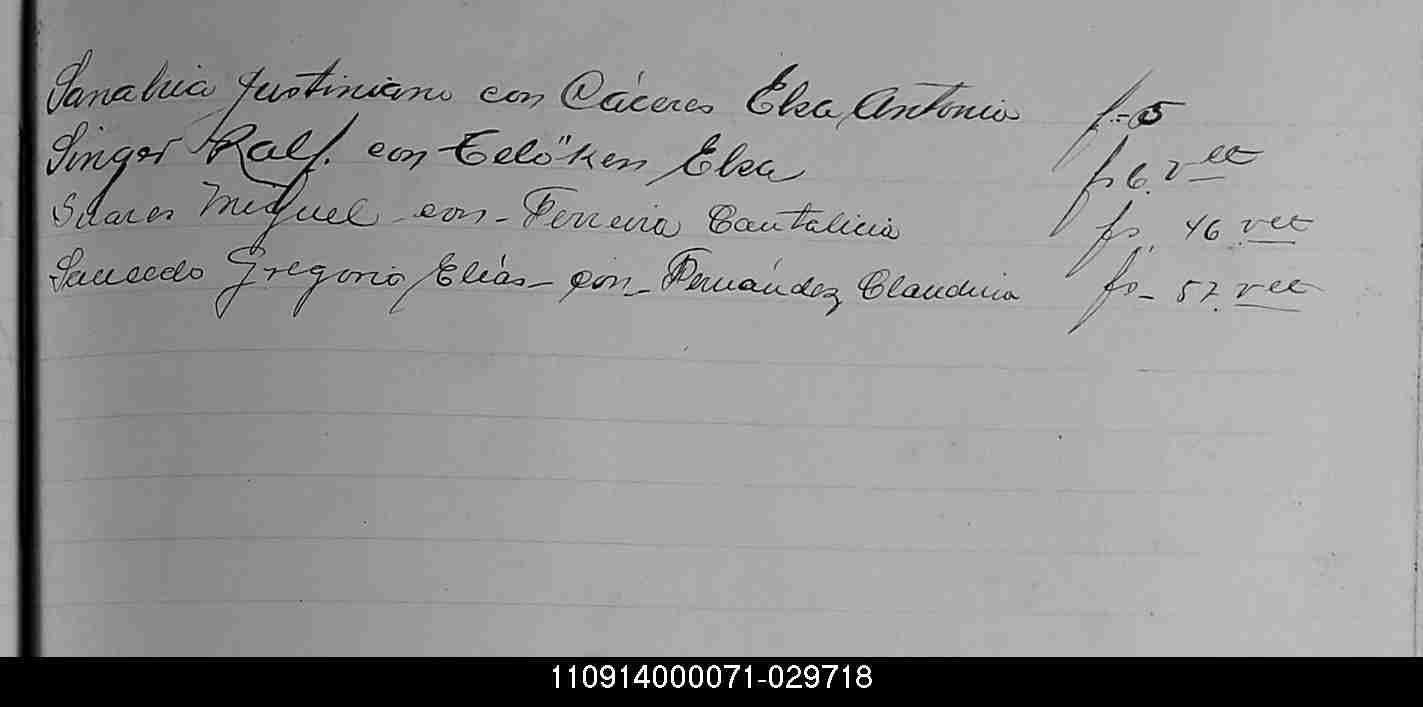 Sanabria Justiniano con Cáceres Elsa Antonia f.- 5
Singer Ralf. con Telöken Elsa fs 6. vlto
Suares Miguel - con - Ferreira Cantalicia fs. 46 vlto
Saucedo Gregorio Elías - con - Fernández Claudicia fs - 57. vlto
110914000071-029718